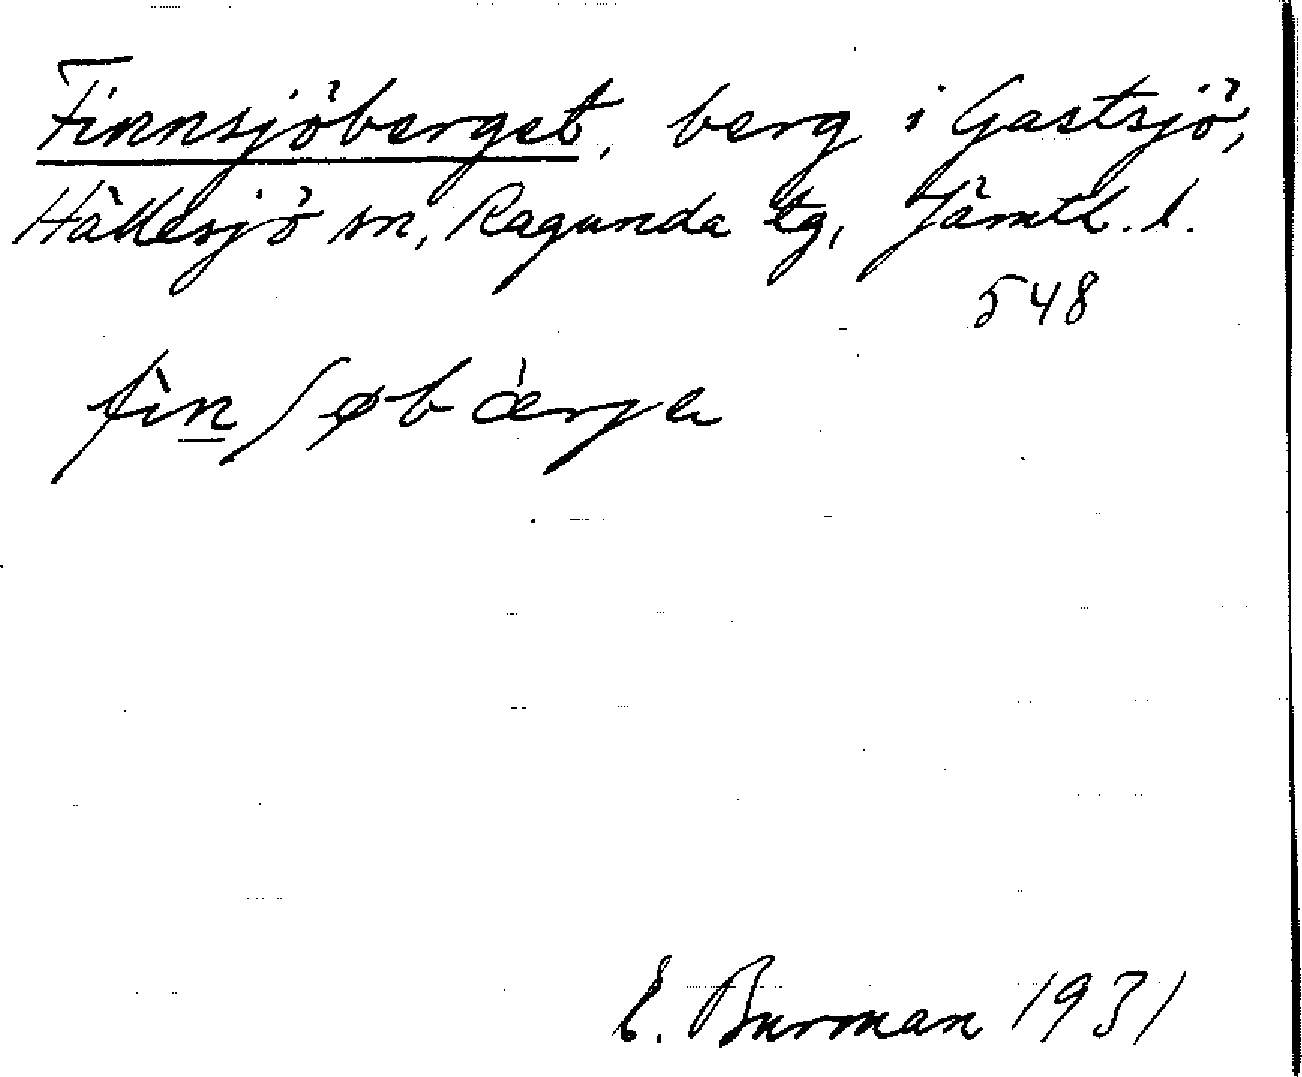 Finnsjöberget, berg i Gastsjö,
Hällesjö sn, Ragunda tg, Jämtl. l.
548
fìn̲ʃøbǽrjɐ
E. Burman 1931